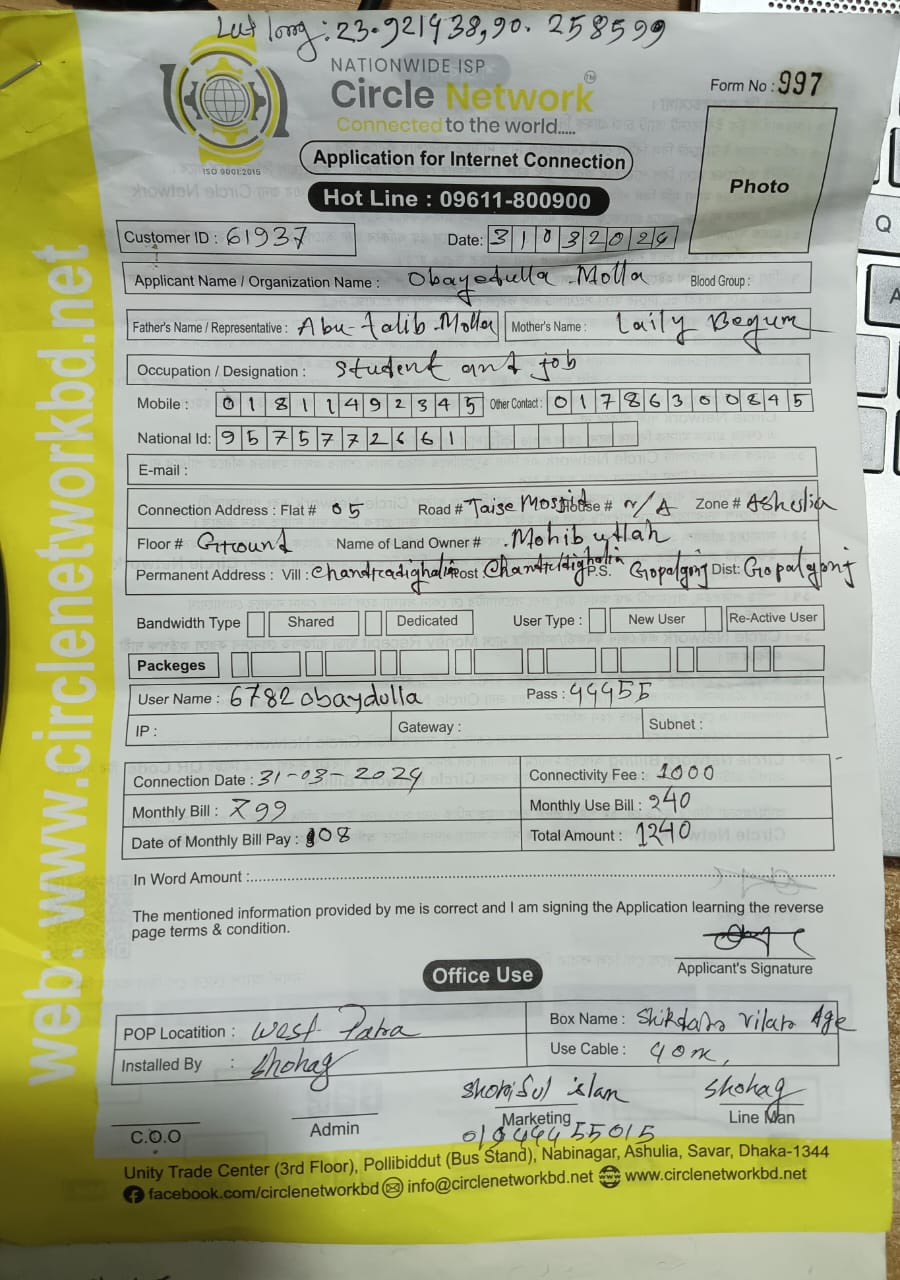 Lat long: 23.921438,90.258599
NATIONWIDE ISP
Circle Network TM
Connected to the world.....
ISO 9001:2015
Form No : 997
Application for Internet Connection
Photo
Hot Line : 09611-800900
Customer ID : 61937
Date: 31032024
Applicant Name / Organization Name : Obayedulla Molla Blood Group :
Father's Name / Representative : Abu-talib-Molla Mother's Name : Laily Begum
Occupation / Designation : Student and job
Mobile : 01811492345 Other Contact : 01786300845
National Id: 9575772661
E-mail :
Connection Address : Flat # 05 Road # Taise Mosjid House # N/A Zone # Ashulia
Floor # Ground Name of Land Owner # Mohib ullah
Permanent Address : Vill : Chandradighalia Post Chandradighalia P.S. Gopalgonj Dist: Gopalgonj
Bandwidth Type Shared Dedicated User Type : New User Re-Active User
Packeges
User Name : 6782obaydulla Pass : 44455
IP : Gateway : Subnet :
Connection Date : 31-03-2024 Connectivity Fee : 1000
Monthly Bill : 799 Monthly Use Bill : 240
Date of Monthly Bill Pay : 08 Total Amount : 1240
In Word Amount :
The mentioned information provided by me is correct and I am signing the Application learning the reverse
page terms & condition.
Applicant's Signature
Office Use
POP Locatition : West Para Box Name : Shikdar Age
Installed By : Shohag Use Cable : 40m,
Shoriful islam Shohag
C.O.O Admin Marketing Line Man
01944455015
Unity Trade Center (3rd Floor), Pollibiddut (Bus Stand), Nabinagar, Ashulia, Savar, Dhaka-1344
facebook.com/circlenetworkbd info@circlenetworkbd.net www.circlenetworkbd.net
web: www.circlenetworkbd.net
Q
A